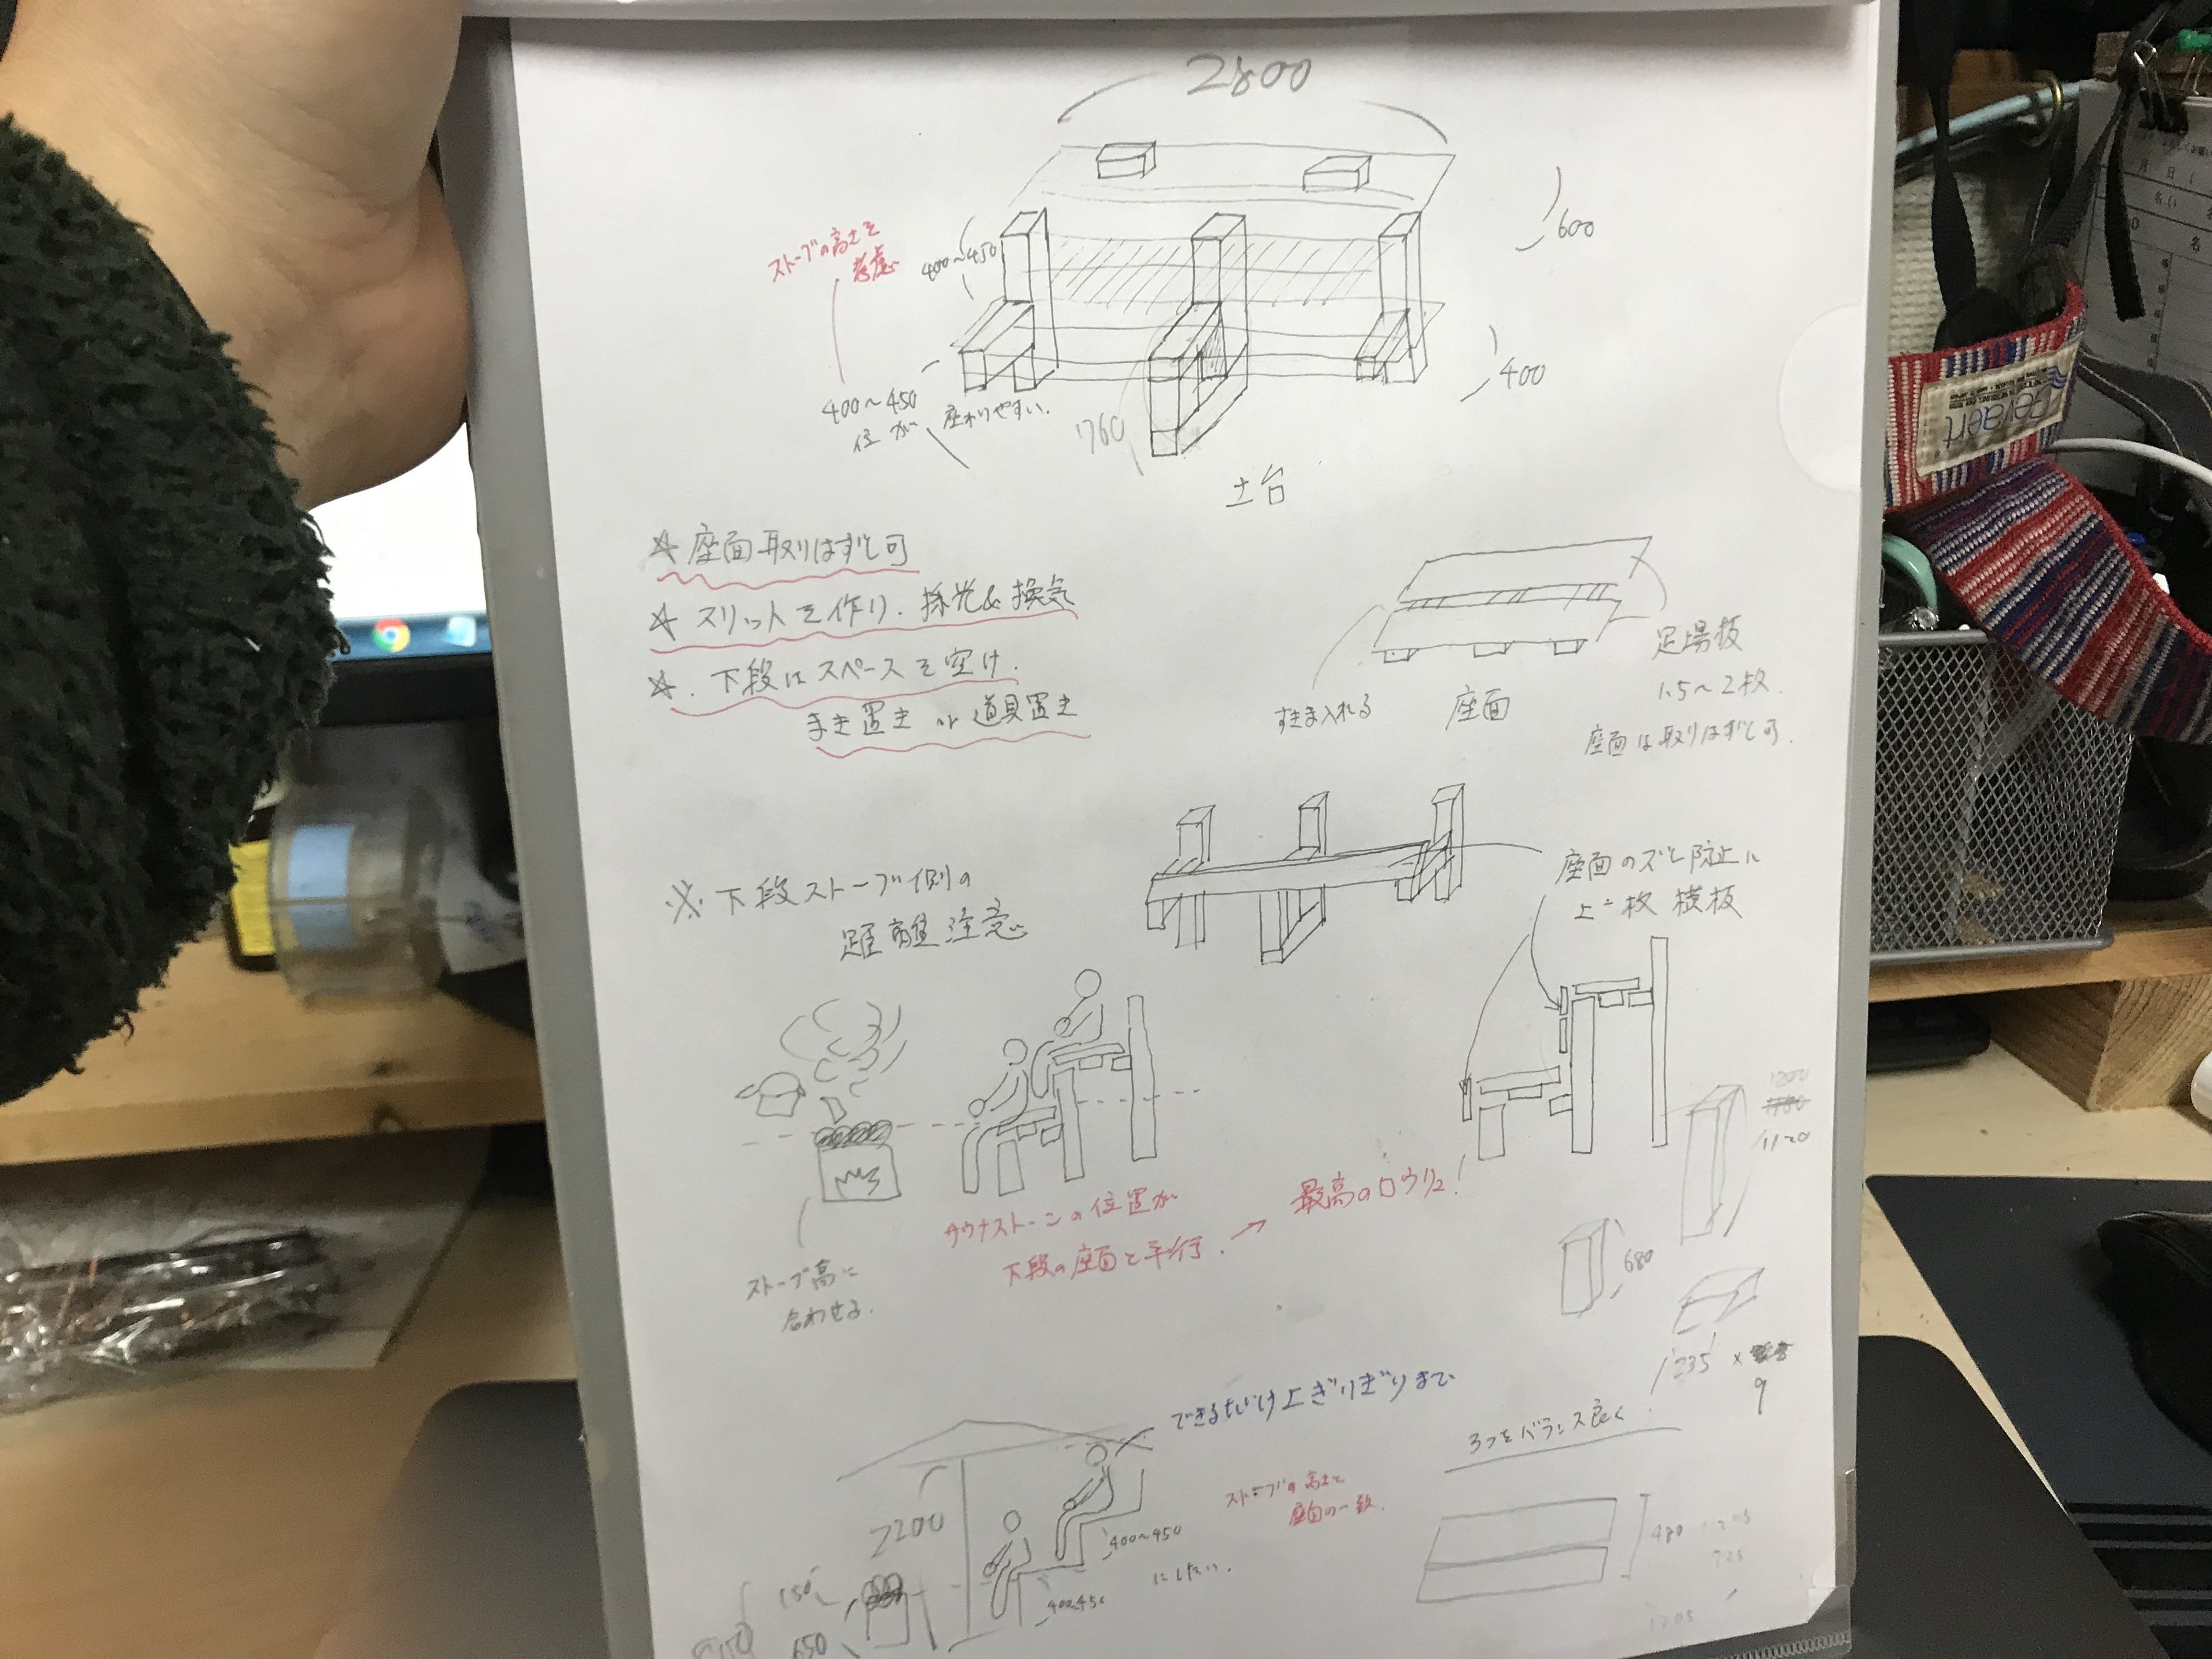 2800
600
ストーブの高さを
考慮
400~450
400
400~450
位が 座わりやすい.
760
土台
☆ 座面取りはずし可
☆ スリットを作り、採光&換気
☆. 下段はスペースを空け.
まき置き or 道具置き
足場板
1.5~2枚.
すきま入れる
座面
座面は取りはずし可.
座面のズレ防止に
上に一枚 横板
※ 下段ストーブ側の
距離注意
1200
1120
サウナストーンの位置が
下段の座面と平行. → 最高のロウリュ!
ストーブ高に
合わせる.
680
235 ×
9
できるだけ上ぎりぎりまで
3つをバランス良く
2200
ストーブの高さと
座面の一致.
400~450
にしたい.
400~450
150
650
480
1205
Gevaert